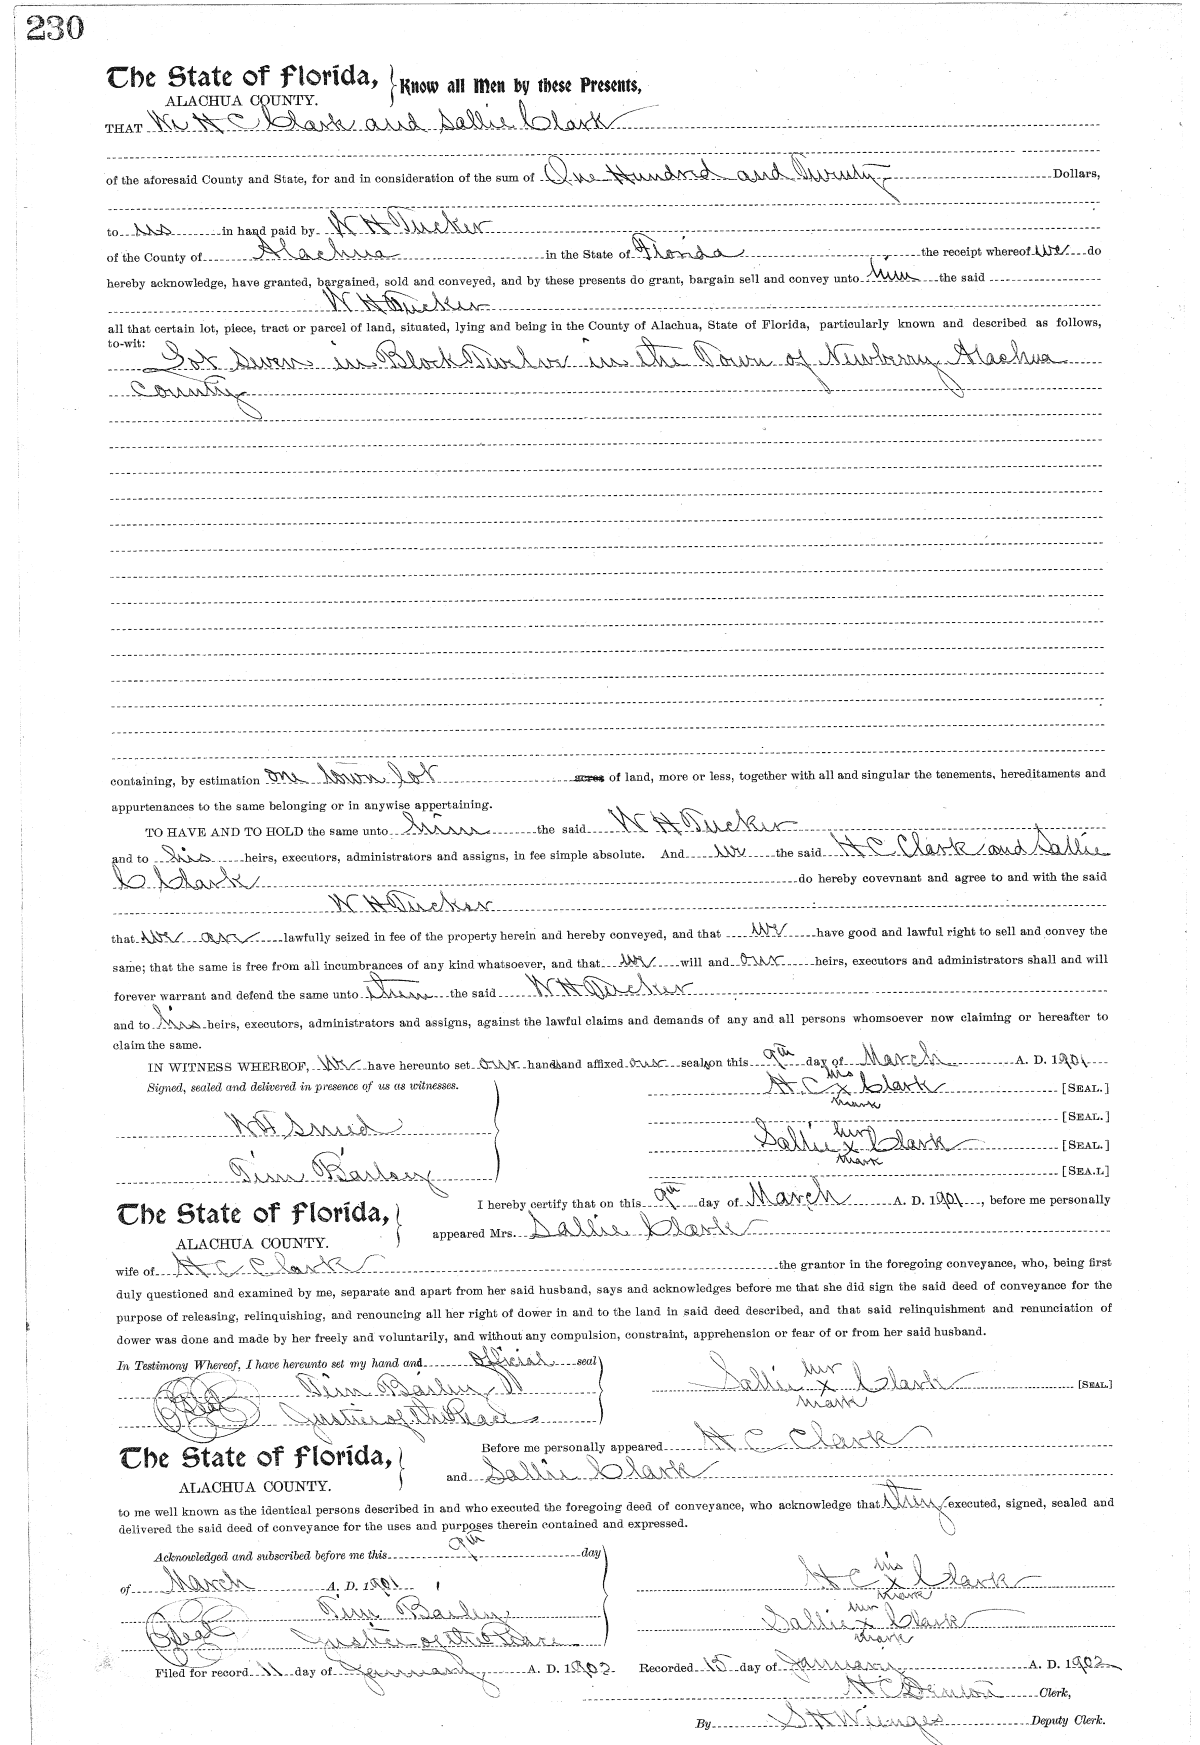 230
The State of Florida, } Know all Men by these Presents,
ALACHUA COUNTY.
THAT We H C Clark and Sallie Clark
of the aforesaid County and State, for and in consideration of the sum of One Hundred and Twenty Dollars,
to us in hand paid by W H Tucker
of the County of Alachua in the State of Florida the receipt whereof we do
hereby acknowledge, have granted, bargained, sold and conveyed, and by these presents do grant, bargain sell and convey unto him the said
W H Tucker
all that certain lot, piece, tract or parcel of land, situated, lying and being in the County of Alachua, State of Florida, particularly known and described as follows,
to-wit:
Lot Seven in Block Twelve in the Town of Newberry Alachua
County
containing, by estimation one town lot acres of land, more or less, together with all and singular the tenements, hereditaments and
appurtenances to the same belonging or in anywise appertaining.
TO HAVE AND TO HOLD the same unto him the said W H Tucker
and to his heirs, executors, administrators and assigns, in fee simple absolute. And we the said H C Clark and Sallie
C Clark do hereby covevnant and agree to and with the said
W H Tucker
that we are lawfully seized in fee of the property herein and hereby conveyed, and that we have good and lawful right to sell and convey the
same; that the same is free from all incumbrances of any kind whatsoever, and that we will and our heirs, executors and administrators shall and will
forever warrant and defend the same unto them the said W H Tucker
and to his heirs, executors, administrators and assigns, against the lawful claims and demands of any and all persons whomsoever now claiming or hereafter to
claim the same.
IN WITNESS WHEREOF, We have hereunto set our hands and affixed our seals on this 9th day of March A. D. 1901
Signed, sealed and delivered in presence of us as witnesses.
H C his x mark Clark [SEAL.]
[SEAL.]
W H Sneed
Sallie her x mark Clark [SEAL.]
Tim Barley [SEAL]
The State of Florida,
ALACHUA COUNTY.
I hereby certify that on this 9th day of March A. D. 1901, before me personally
appeared Mrs. Sallie Clark
wife of H C Clark the grantor in the foregoing conveyance, who, being first
duly questioned and examined by me, separate and apart from her said husband, says and acknowledges before me that she did sign the said deed of conveyance for the
purpose of releasing, relinquishing, and renouncing all her right of dower in and to the land in said deed described, and that said relinquishment and renunciation of
dower was done and made by her freely and voluntarily, and without any compulsion, constraint, apprehension or fear of or from her said husband.
In Testimony Whereof, I have hereunto set my hand and official seal
Seal Tim Barley
Sallie her x mark Clark [SEAL]
Justice of the Peace
The State of Florida,
ALACHUA COUNTY.
Before me personally appeared H C Clark
and Sallie Clark
to me well known as the identical persons described in and who executed the foregoing deed of conveyance, who acknowledge that they executed, signed, sealed and
delivered the said deed of conveyance for the uses and purposes therein contained and expressed.
Acknowledged and subscribed before me this 9th day
of March A. D. 1901
H C his x mark Clark
Tim Barley
Sallie her x mark Clark
Seal Justice of the Peace
Filed for record 11 day of January A. D. 1902 Recorded 15 day of January A. D. 1902
H C Denton Clerk,
By S H Wienges Deputy Clerk.